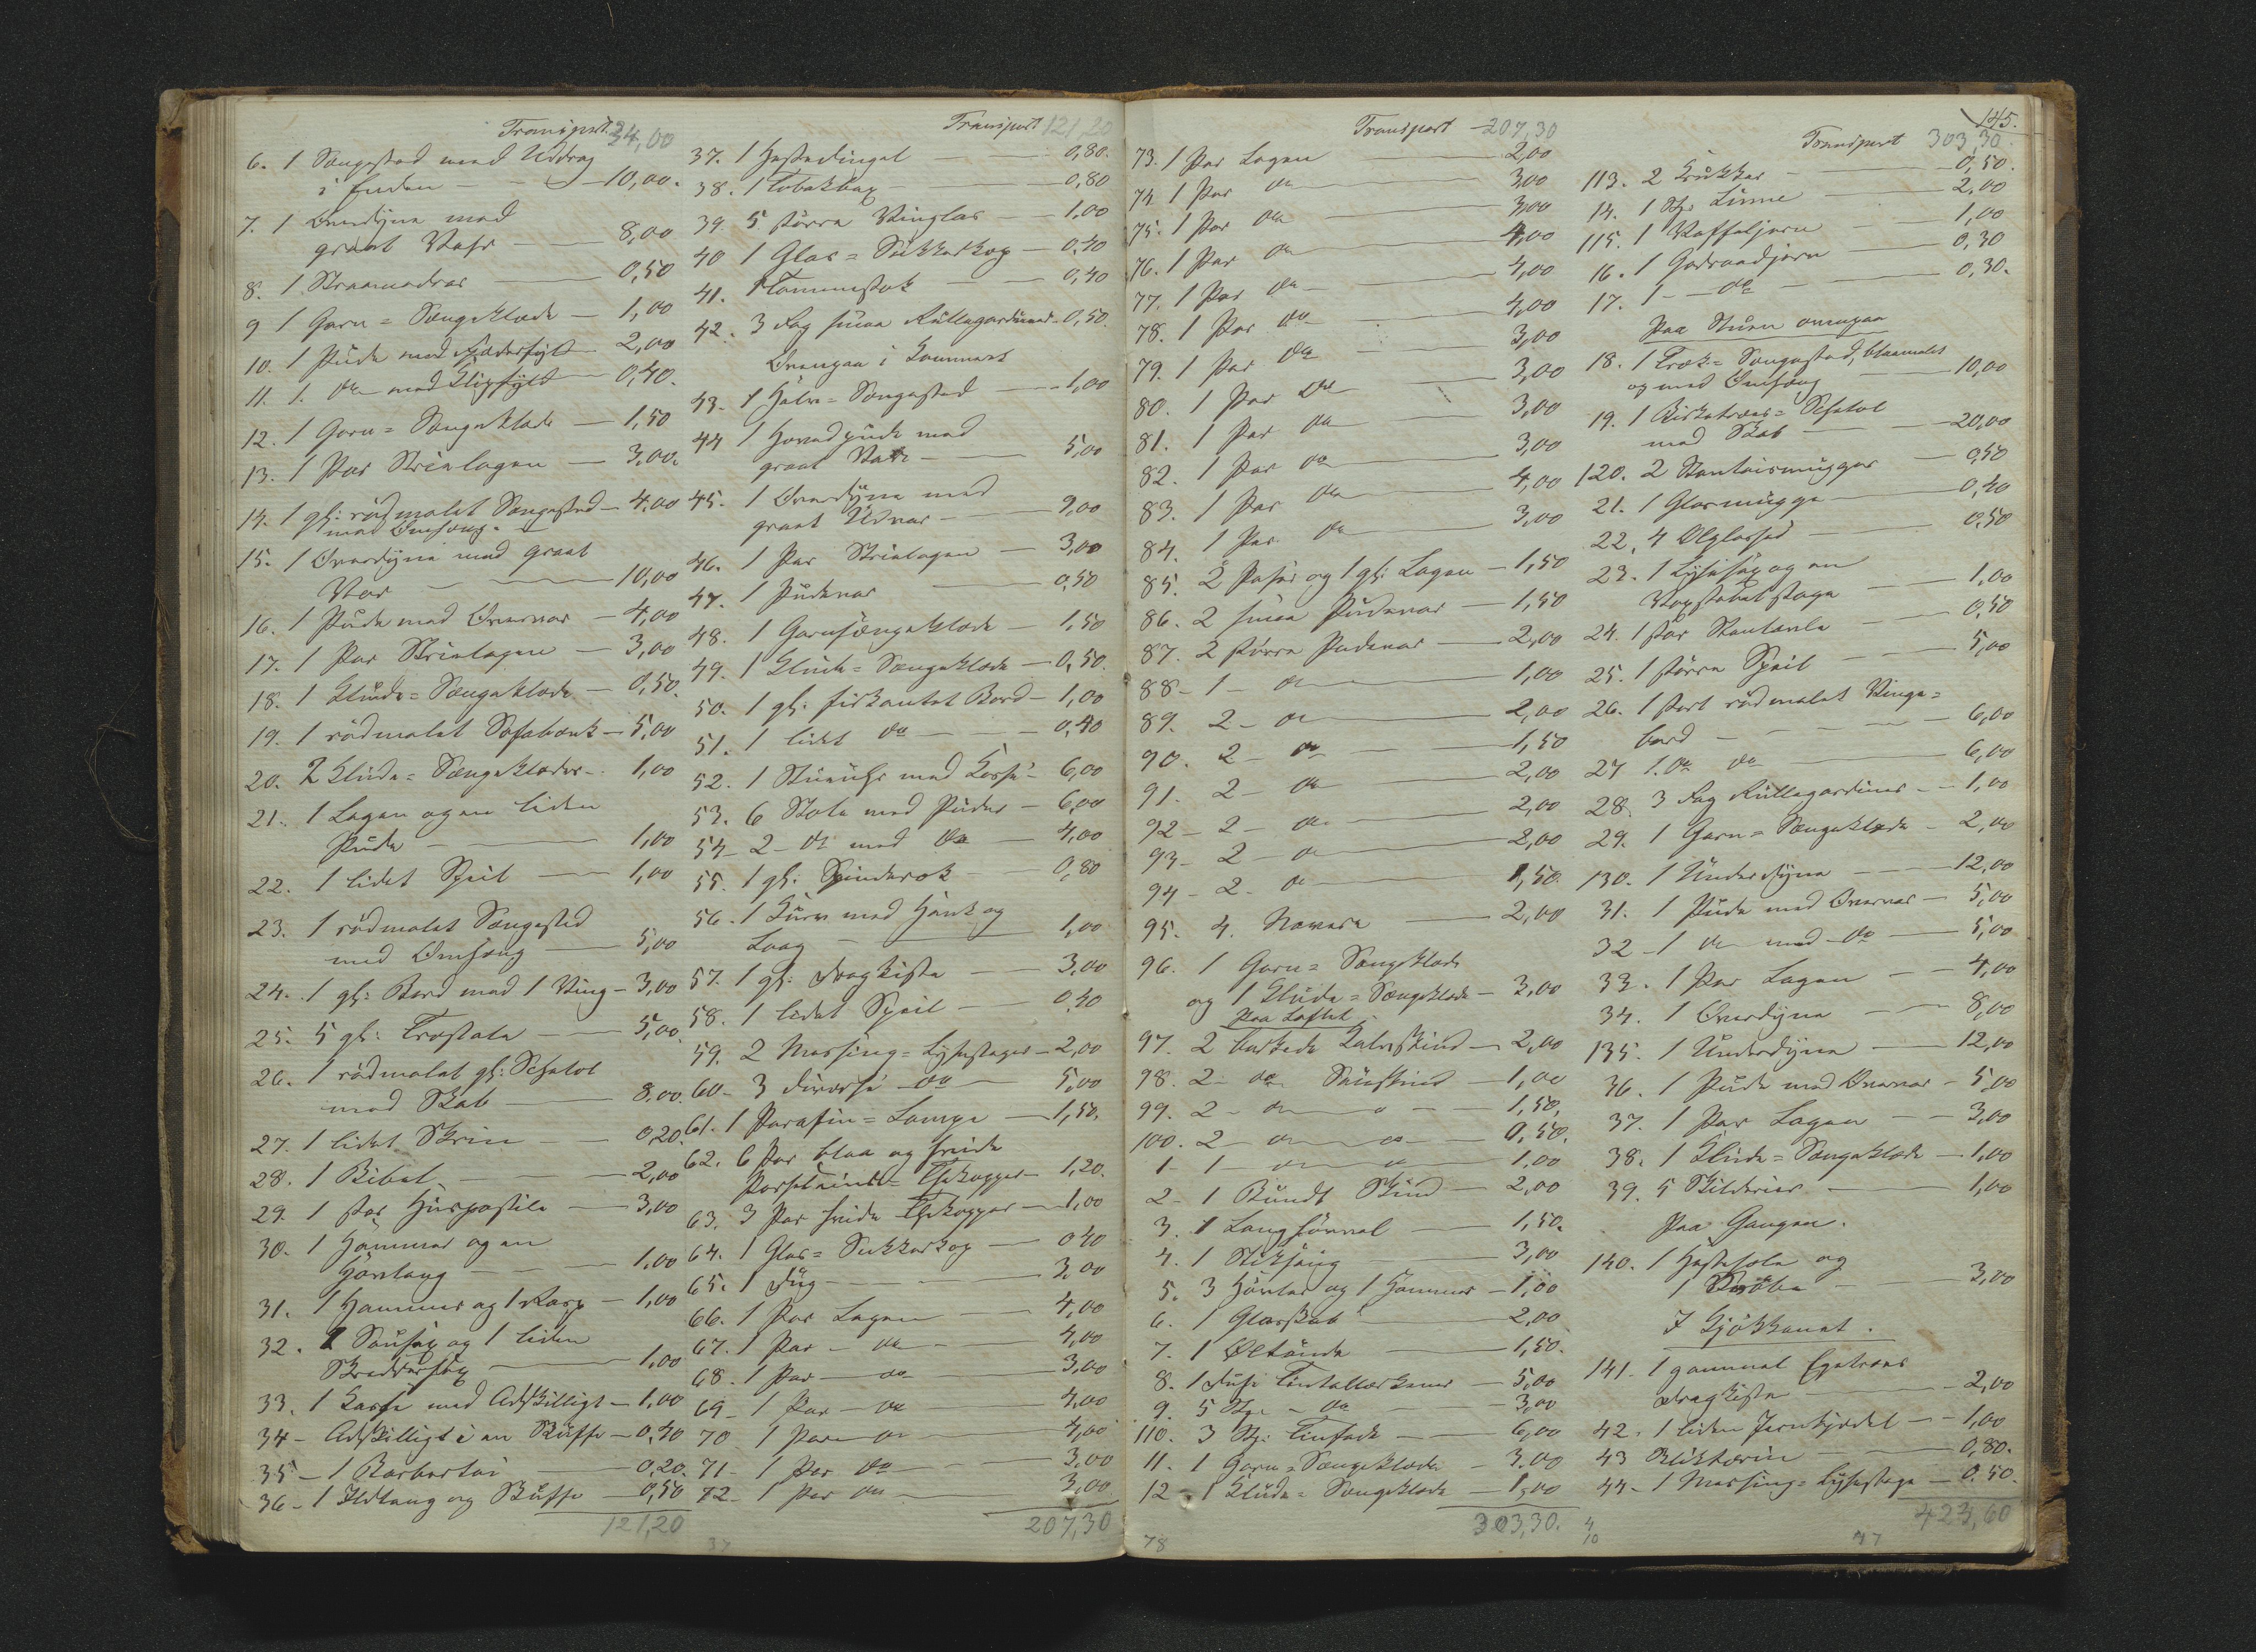 Transport 34,00
6. 1 Sengested med Uddrag
i Enden - 10,00.
7. 1 Overdyne med
graat Vahr - 8,00
8. 1 Straamadras - 0,50
9 1 Garn = Sengeklæde - 1,00
10. 1 Pude med Fjæderfyld 2,00
11. 1. do med Klipfyld 0,40.
12. 1 Garn = Sengeklæde - 1,50
13. 1 Par Strielagen - 3,00.
14. 1 gl: rødmalet Sengested - 4,00
med Omhæng.
15. 1 Overdyne med graat
Var - 10,00
16. 1 Pude med Overvar - 4,00
17. 1 Par Strielagen - 3,00
18. 1 Klude = Sengeklæde - 0,50.
19. 1 rødmalet Sofabænk - 5,00
20. 2 Klude = Sengeklæder - 1,00
21. 1 Lagen og en liden
Pude - 1,00
22. 1 lidet Speil - 1,00
23. 1 rødmalet Sengested
med Omhæng - 5,00
24. 1 gl: Bord med 1 Ving - 3,00
25. 5 gl: Træstole - 5,00.
26. 1 rødmalet gl: Schatol
med Skab - 8,00.
27. 1 lidet Skrin - 0,20.
28. 1 Bibel - 2,00
29. 1 stor Huspostile - 3,00
30. 1 Hammer og en
Hovtang - 1,00
31. 1 Hammer og 1 Rasp - 1,00
32. 1 Sausax og 1 liden
Skræddersax - 1,00
33. 1 Kasse med Adskilligt - 1,00
34 - Adskilligt i en Skuffe - 0,40
35 - 1 Barbertøi - 0,20.
36 - 1 Ildtang og Skuffe - 0,50
121,20
Transport 121,20
37. 1 Hestedingel - 0,80.
38. 1 Tobakbax - 0,80
39. 5 større Vinglas - 1,00
40 1 Glas = Sukkerkop - 0,40
41. 1 Tommestok - 0,40
42. 3 Fag smaa Rullegardiner - 0,50.
Ovenpaa i Kammeret
43. 1 Halv = Sengested - 1,00
44 1 Hovedpude med
graat Var - 5,00
45. 1 Overdyne med
graat Udvar - 9,00
46. 1 Par Strielagen - 3,00
47. 1 Pudevar - 0,50
48. 1 Garnsengeklæde - 1,50
49. 1 Klude = Sengeklæde - 0,50.
50. 1 gl: firkantet Bord - 1,00
51. 1 lidet do - 0,40
52. 1 Stueuhr med Kasse - 6,00
53. 6 Stole med Puder - 6,00
54 - 2 - do med do - 4,00
55. 1 gl: Spinderok - 0,80
56. 1 Kurv med Hank og
Laag - 1,00
57. 1 gl: Dragkiste - 3,00
58. 1 lidet Speil - 0,40
59. 2 Messing = Lysestager - 2,00
60 - 3 diverse do - 5,00
61. 1 Parafin = Lampe - 1,50.
62. 6 Par blaa og hvide
Porselains = Thekopper - 1,20.
63. 3 Par hvide Thekopper - 1,00
64. 1 Glas = Sukkerkop - 0,40
65. 1 Dug - 3,00
66. 1 Par Lagen - 4,00
67. 1 Par - do - 4,00
68. 1 Par - do 3,00
69 - 1 Par - do 4,00
70 1 Par - do 4,00
71 - 1 Par do 3,00
72 - 1 Par do 3,00.
207,30
37
Transport - 207,30
73. 1 Par Lagen - 2,00
74 1 Par do - 3,00
75. 1 Par do - 3,00
76. 1 Par do - 4,00
77. 1 Par do - 4,00
78. 1 Par do - 4,00
79. 1 Par do - 3,00
80. 1 Par do - 3,00
81. 1 Par do - 3,00
82. 1 Par do - 3,00
83. 1 Par do - 4,00
84. 1 Par do - 3,00
85. 2 Pasar og 1 gl: Lagen - 1,50
86. 2 smaa Pudevar - 1,50
87. 2 større Pudevar - 2,00
88 - 1 - do - 1,00
89. 2 - do - 2,00
90. 2 - do - 1,50
91. 2 - do - 2,00
92 - 2 - do - 2,00
93 - 2 - do - 2,00
94 - 2 - do - 1,50.
95. 4. Navere - 2,00
96. 1 Garn = Sengeklæde
og 1 Klude = Sengeklæde - 3,00
Paa Loftet
97. 2 barkede Kalveskind - 2,00
98. 2 - do Saueskind - 1,00
99. 2 - do - 1,50.
100. 2 - do - 0,50.
1 - 1 - do - 1,00
2 - 1 Bundt Skind - 2,00
3. 1 Langhøvvel - 1,50.
4. 1 Stiksaug - 3,00
5. 3 Høvler og 1 Hammer - 1,00
6. 1 Glasskab - 2,00
7. 1 Øltønde - 1,50.
8. 1 Dusi Tintallerkener - 5,00
9. 5 Stk: - do - 3,00
110. 3 Stk: Tinfade - 6,00
11. 1 Garn = Sengeklæde - 3,00
12 - 1 Klude = Sengeklæde - 1,00
303,30.
78
145.
Transport 303,30.
113. 2 Krukker - 0,50.
14. 1 Stk: Linne - 2,00
115. 1 Vaffeljern - 1,00
16. 1 Goderaadjern - 0,30
17. 1 - do - 0,30.
Paa Stuen ovenpaa
18. 1 Træk = Sengested, blaamalet
og med Omhæng - 10,00
19. 1 Birketræes = Schatol
med Skab - 20,00
120. 2 Stentøismugger - 0,50
21. 1 Glasmugge - 0,40
22. 4 Ølglasser - 0,50
23. 1 Lysesax og en
Voxstabelstage - 1,00
24. 1 Par Stentavle - 0,50
25. 1 større Speil - 5,00
26. 1 stort rødmalet Vinge =
bord - 6,00
27 1. do do - 6,00
28. 3 Fag Rullegardiner - 1,00
29. 1 Garn = Sengeklæde - 2,00
130. 1 Underdyne - 12,00
31. 1 Pude med Overvar - 5,00
32 - 1 do med do - 5,00
33. 1 Par Lagen - 4,00
34. 1 Overdyne - 8,00
135. 1 Underdyne - 12,00
36. 1 Pude med Overvar - 5,00
37. 1 Par Lagen - 3,00
38. 1 Klude = Sengeklæde - 1,00
39. 5 Skilderier - 1,00
Paa Gangen.
140. 1 Hestesele og
1 - 3,00
I Kjøkkenet.
141. 1 gammel Egetræes
Dragkiste - 2,00
42. 1 liden Jernkjedel - 1,00
43 Bliktærin - 0,80.
44 - 1 Messing = Lysestage - 0.50.
423,60
4
10
77